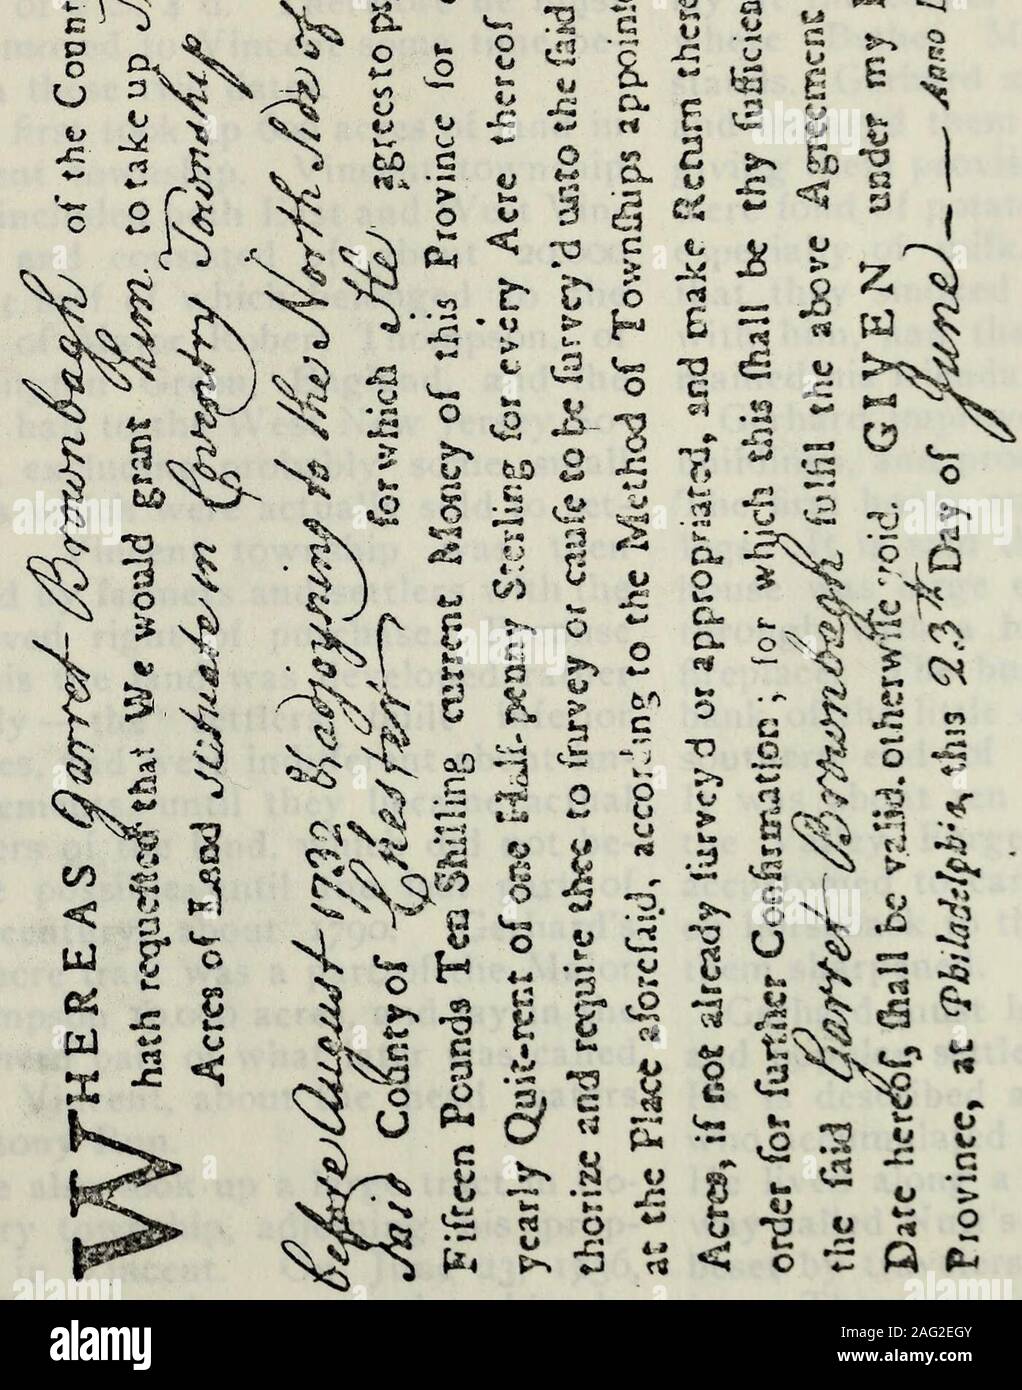 WHEREAS Garret Brownbagh of the Count
hath requeſted that We would grant him to take up
Acres of Land scituate in Coventry Township
before August 1732 & adjoyning to the North Side of
said County of Chester for which He agrees to p
Fifteen Pounds Ten Shilling current Money of this Province for
yearly Quit-rent of one Half-penny Sterling for every Acre thereof
thorize and require thee to ſurvey or cauſe to be ſurvey'd unto the ſaid
at the Place aforeſaid, according to the Method of Townſhips appoint
Acres, if not already ſurvey'd or appropriated, and make Return there
order for further Confirmation; for which this ſhall be thy ſufficien
the ſaid Garret Brownbagh fulfil the above Agreement
Date hereof, ſhall be valid, otherwiſe void. GIVEN under my
Province, at Philadelphia, this 23th Day of June — Anno
alamy
Image ID: 2AG2EGY
www.alamy.com